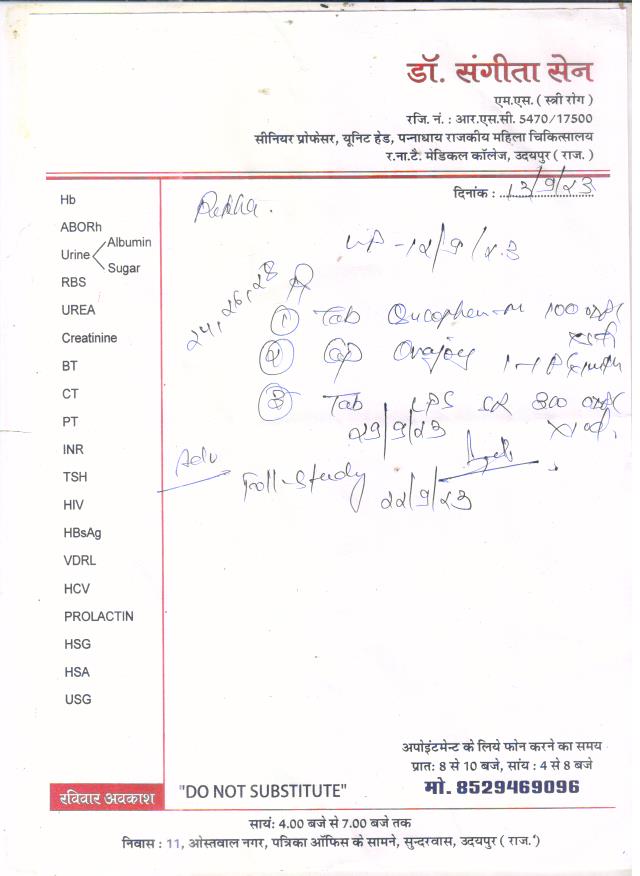 डॉ. संगीता सेन
एम.एस. ( स्त्री रोग )
रजि. नं. : आर.एस.सी. 5470/17500
सीनियर प्रोफेसर, यूनिट हेड, पन्नाधाय राजकीय महिला चिकित्सालय
र.ना.टै. मेडिकल कॉलेज, उदयपुर ( राज. )
दिनांक : 13/9/23
Hb
ABORh
Urine Albumin
Sugar
RBS
UREA
Creatinine
BT
CT
PT
INR
TSH
HIV
HBsAg
VDRL
HCV
PROLACTIN
HSG
HSA
USG
Rekha.
12/9/23
24, 26, 28
① Tab 100
② Cap
③ Tab
29/9/23
Adv
Foll-Study
22/9/23
अपोइंटमेन्ट के लिये फोन करने का समय
प्रातः 8 से 10 बजे, सांय : 4 से 8 बजे
मो. 8529469096
रविवार अवकाश
"DO NOT SUBSTITUTE"
सायं: 4.00 बजे से 7.00 बजे तक
निवास : 11, ओस्तवाल नगर, पत्रिका ऑफिस के सामने, सुन्दरवास, उदयपुर ( राज. )